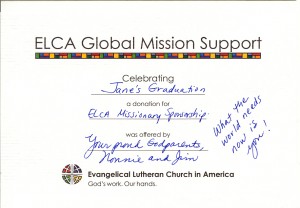 ELCA Global Mission Support
Celebrating
Jane's Graduation
a donation for
ELCA Missionary Sponsorship
was offered by
Your proud Godparents,
Nonnie and Jim
What the
world needs
now is
you!
Evangelical Lutheran Church in America
God's work. Our hands.